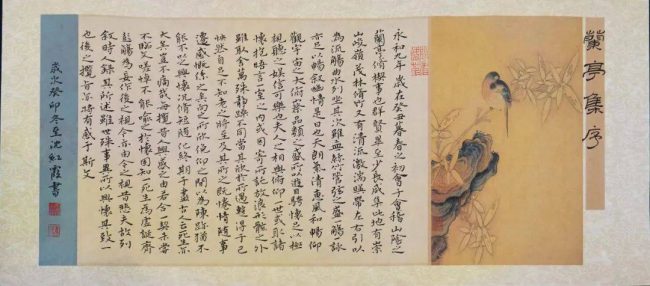 蘭亭集序
永和九年歲在癸丑暮春之初會于會稽山陰之
蘭亭脩禊事也群賢畢至少長咸集此地有崇
山峻嶺茂林脩竹又有清流激湍暎帶左右引以
為流觴曲水列坐其次雖無絲竹管弦之盛一觴一詠
亦足以暢敘幽情是日也天朗氣清惠風和暢仰
觀宇宙之大俯察品類之盛所以遊目騁懷足以極
視聽之娛信可樂也夫人之相與俯仰一世或取諸
懷抱悟言一室之內或因寄所託放浪形骸之外
雖趣舍萬殊靜躁不同當其欣於所遇暫得於己
怏然自足不知老之將至及其所之既惓情隨事
遷感慨係之矣向之所欣俛仰之間以為陳跡猶不
能不以之興懷況脩短隨化終期于盡古人云死生亦
大矣豈不痛哉每攬昔人興感之由若合一契未嘗
不臨文嗟悼不能喻之於懷固知一死生為虛誕齊
彭殤為妄作後之視今亦由今之視昔悲夫故列
敘時人錄其所述雖世殊事異所以興懷其致一
也後之攬者亦將有感于斯文
歲次癸卯冬至沈紅霞書